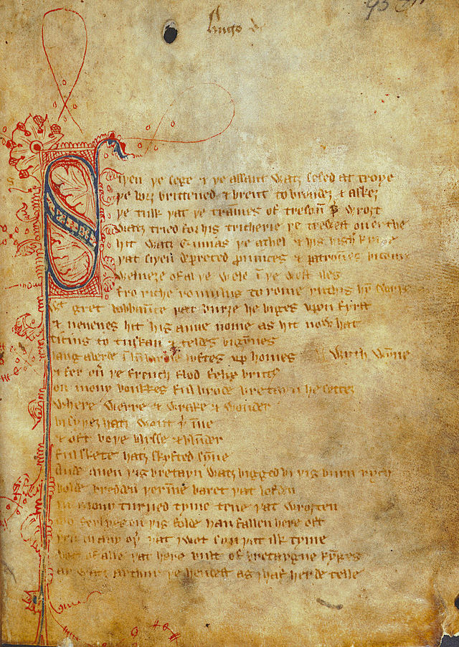 Hugo de
Siþen þe sege & þe assaut watz sesed at troye
þe borȝ brittened & brent to brondez & askez
þe tulk þat þe trammes of tresoū þ̄ wroȝt
Watz tried for his tricherie þe trewest on erthe
hit watz Ennias þe athel & his highe kynde
þat siþen depreced prouinces & patrounes bicome
Welneȝe of al þe wele ī þe west iles
fro riche romulus to rome ricchis hym swyþe
gret bobbaunce þat burȝe he biges vpon fyrst
& neuenes hit his aune nome as hit now hat
ticius to tuskan & teldes bigynnes
langaberde ī lumbardie lyftes vp homes with wȳne
& fer ouer þe french flod felix brutus
On mony bonkkes ful brode bretayn he settez
Where werre & wrake & wonder
bi syþez hatz wont þ̄ īne
& oft boþe blysse & blunder
ful skete hatz skyfted sȳne
Ande quen þis bretayn watz bigged bi þis burn rych
bolde bredden þ̄ inne baret þat lofden
In mony turned tyme tene þat wroȝten
mo ferlyes on þis folde han fallen here oft
þen in any oþ̄ þat I wot syn þat ilk tyme
bot of alle þat here bult of bretaygne kȳges
ay watz arthur þe hendest as I haf herde telle